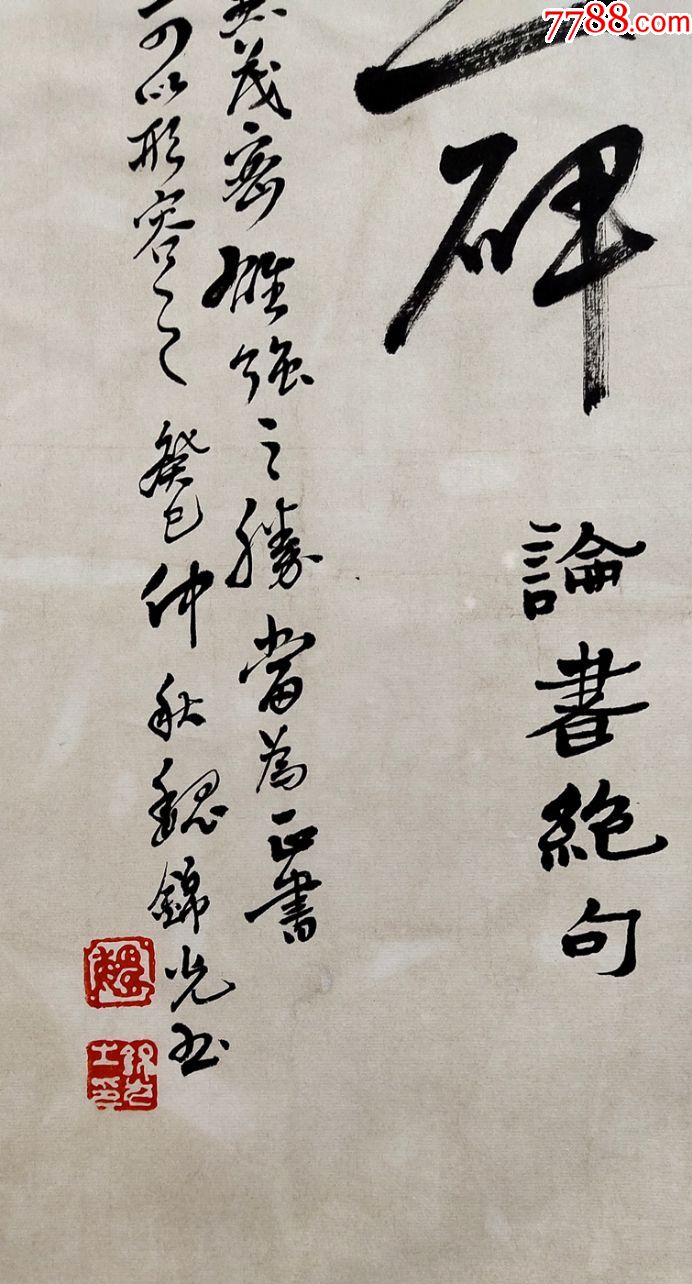 7788.com
碑
論書絕句
茂密雄強之勝當為正書
可以形容之癸巳仲秋魏錦光书